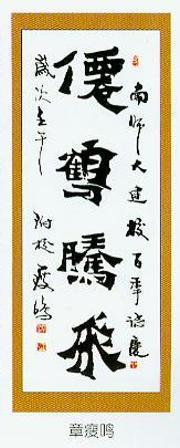 南师大建校百年志庆
僊鹤腾飛
岁次壬午
附校 瘦鸣
章瘦鸣